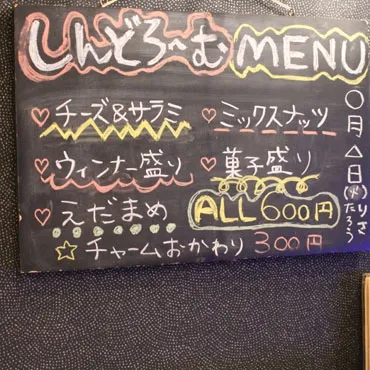 しんどろ〜む MENU
♡ チーズ&サラミ
♡ ミックスナッツ
♡ ウィンナー盛り
♡ 菓子盛り
♡ えだまめ
ALL 600円
☆ チャームおかわり 300円
○月△日(水)
りさ
たろう